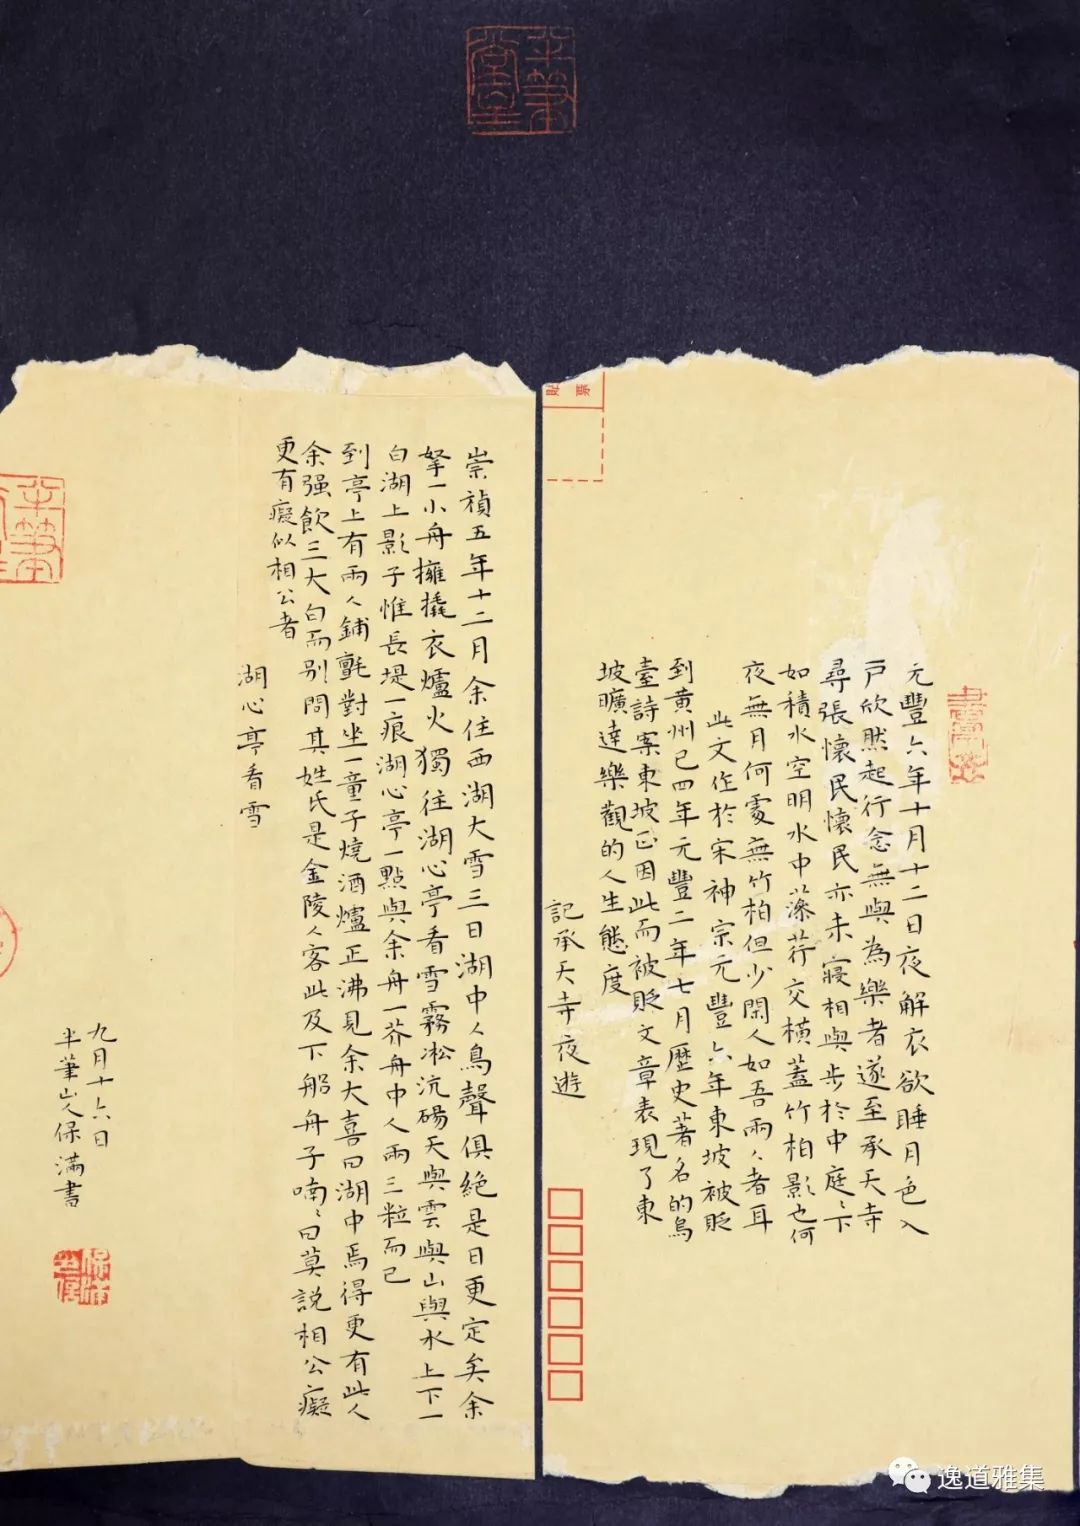 半筆堂
貼票
元豐六年十月十二日夜解衣欲睡月色入
戶欣然起行念無與為樂者遂至承天寺
尋張懷民懷民亦未寢相與步於中庭〻下
如積水空明水中藻荇交橫蓋竹柏影也何
夜無月何處無竹柏但少閑人如吾兩人者耳
此文作於宋神宗元豐六年東坡被貶
到黃州已四年元豐二年七月歷史著名的烏
臺詩案東坡正因此而被貶文章表現了東
坡曠達樂觀的人生態度
記承天寺夜遊
崇禎五年十二月余住西湖大雪三日湖中人鳥聲俱絕是日更定矣余
拏一小舟擁撬衣爐火獨往湖心亭看雪霧凇沆碭天與雲與山與水上下一
白湖上影子惟長堤一痕湖心亭一點與余舟一芥舟中人兩三粒而已
到亭上有兩人鋪氈對坐一童子燒酒爐正沸見余大喜曰湖中焉得更有此人
余強飲三大白而別問其姓氏是金陵人客此及下船舟子喃〻曰莫說相公癡
更有癡似相公者
湖心亭看雪
九月十六日
半筆山人保滿書
逸道雅集